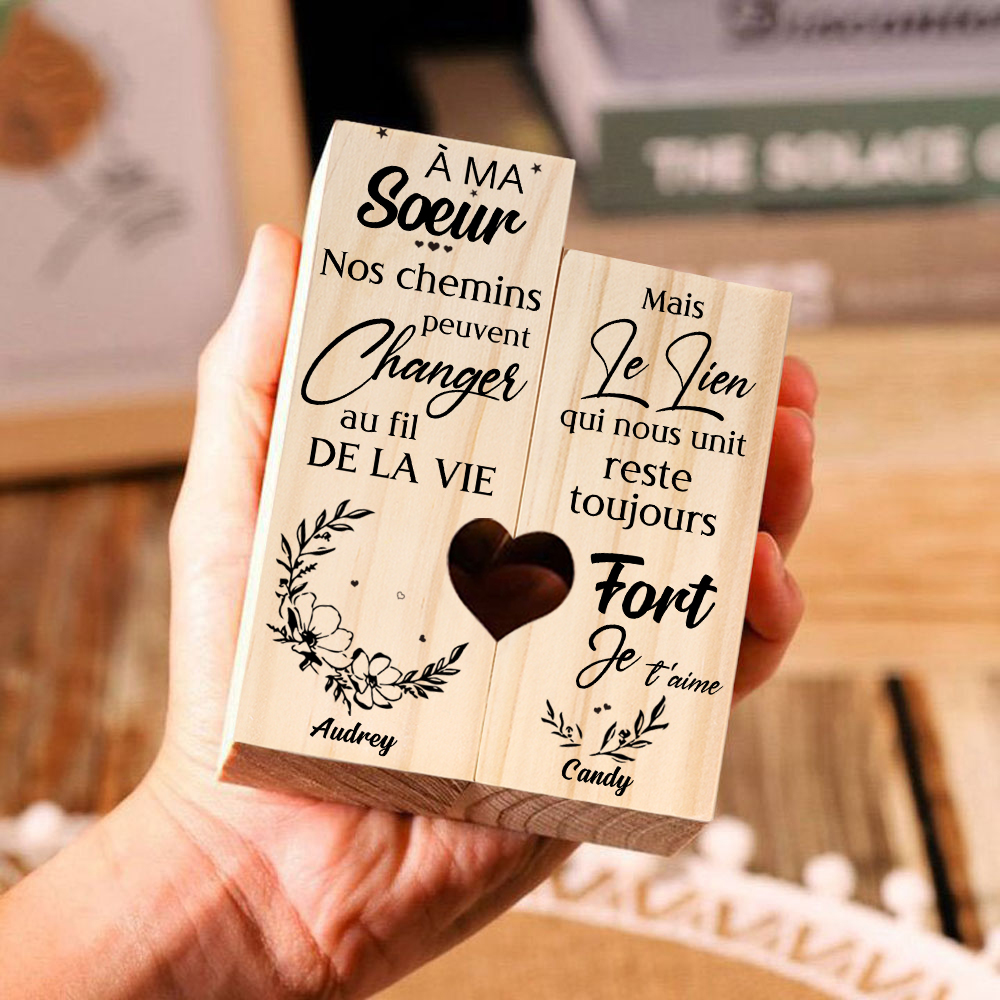 À MA
Sœur
Nos chemins
peuvent
Changer
au fil
DE LA VIE
Audrey
Mais
Le Lien
qui nous unit
reste
toujours
Fort
Je t'aime
Candy
THE SOLACE